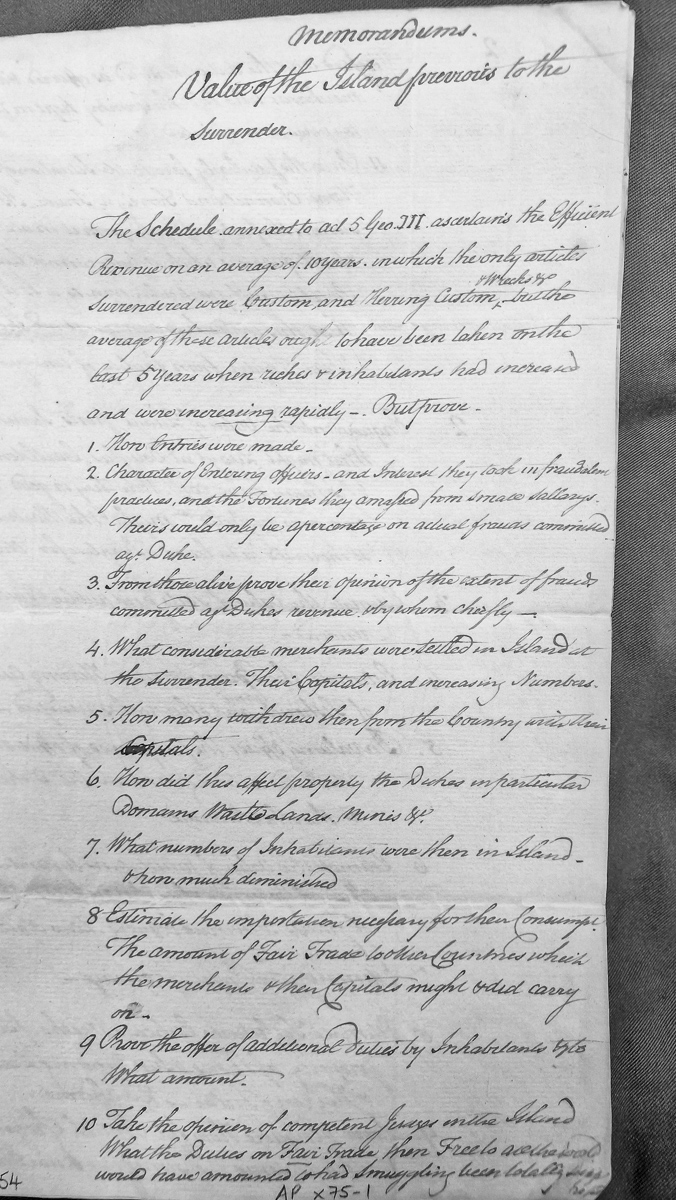 Memorandums.
Value of the Island previous to the
Surrender.
The Schedule annexed to act 5 Geo. III ascertains the Efficient
Revenue on an average of 10 years. in which the only articles
& Wrecks &c
Surrendered were Custom, and Herring Custom, - but the
average of these articles ought to have been taken on the
last 5 years when riches & inhabitants had increased
and were increasing rapidly -. But prove -
1. How Entries were made -
2. Character of Entering officers - and Interest they took in fraudulent
practices, and the Fortunes they amassed from small Sallarys.
Theirs would only be a percentage on actual frauds committed
agt Duke.
3. From those alive prove their opinion of the extent of frauds
committed agt Dukes revenue & by whom cheefly -
4. What considerable merchants were settled in Island at
the Surrender. Their Capitals, and increasing Numbers.
5. How many withdrew then from the Country with their
Capitals.
6. How did this affect property the Dukes in particular
Domains Waste Lands. Mines &c.
7. What numbers of Inhabitants were then in Island -
& how much diminished
8 Estimate the importation necessary for their Consumpt.
The amount of Fair Trade to other Countries which
the merchants & their Capitals might & did carry
on -
9 Prove the offer of additional Duties by Inhabitants & to
What amount.
10 Take the opinion of competent Judges in the Island
What the Duties on Fair Trade then Free to all the world
would have amounted to had Smuggling been totally
54
AP X75-1